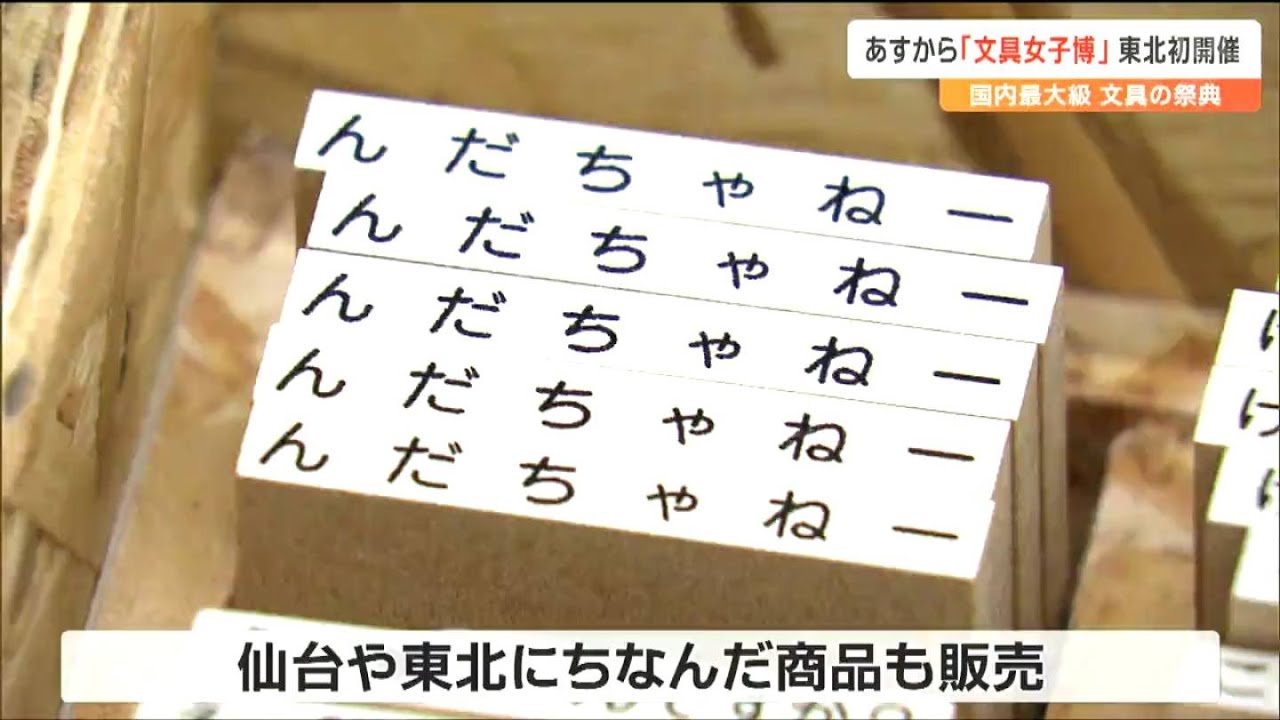 あすから「文具女子博」東北初開催
国内最大級 文具の祭典
んだちゃねー
んだちゃねー
んだちゃねー
んだちゃねー
んだちゃねー
け
仙台や東北にちなんだ商品も販売